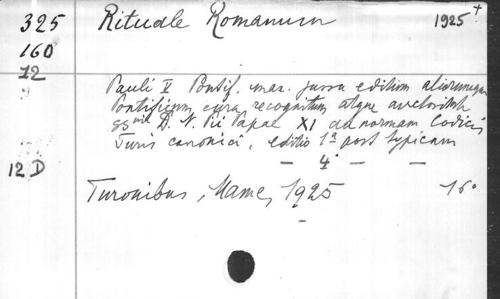 325 Rituale Romanum 1925+
160
12
Pauli V Pontif. max. jussu editum aliorumque
Pontificum cura recognitum atque auctoritate
SSmi D. N. Pii Papae XI ad normam Codicis
Juris canonici, editio 1a post typicam
— 4° — —
12 D
Turonibus, Mame, 1925 16°